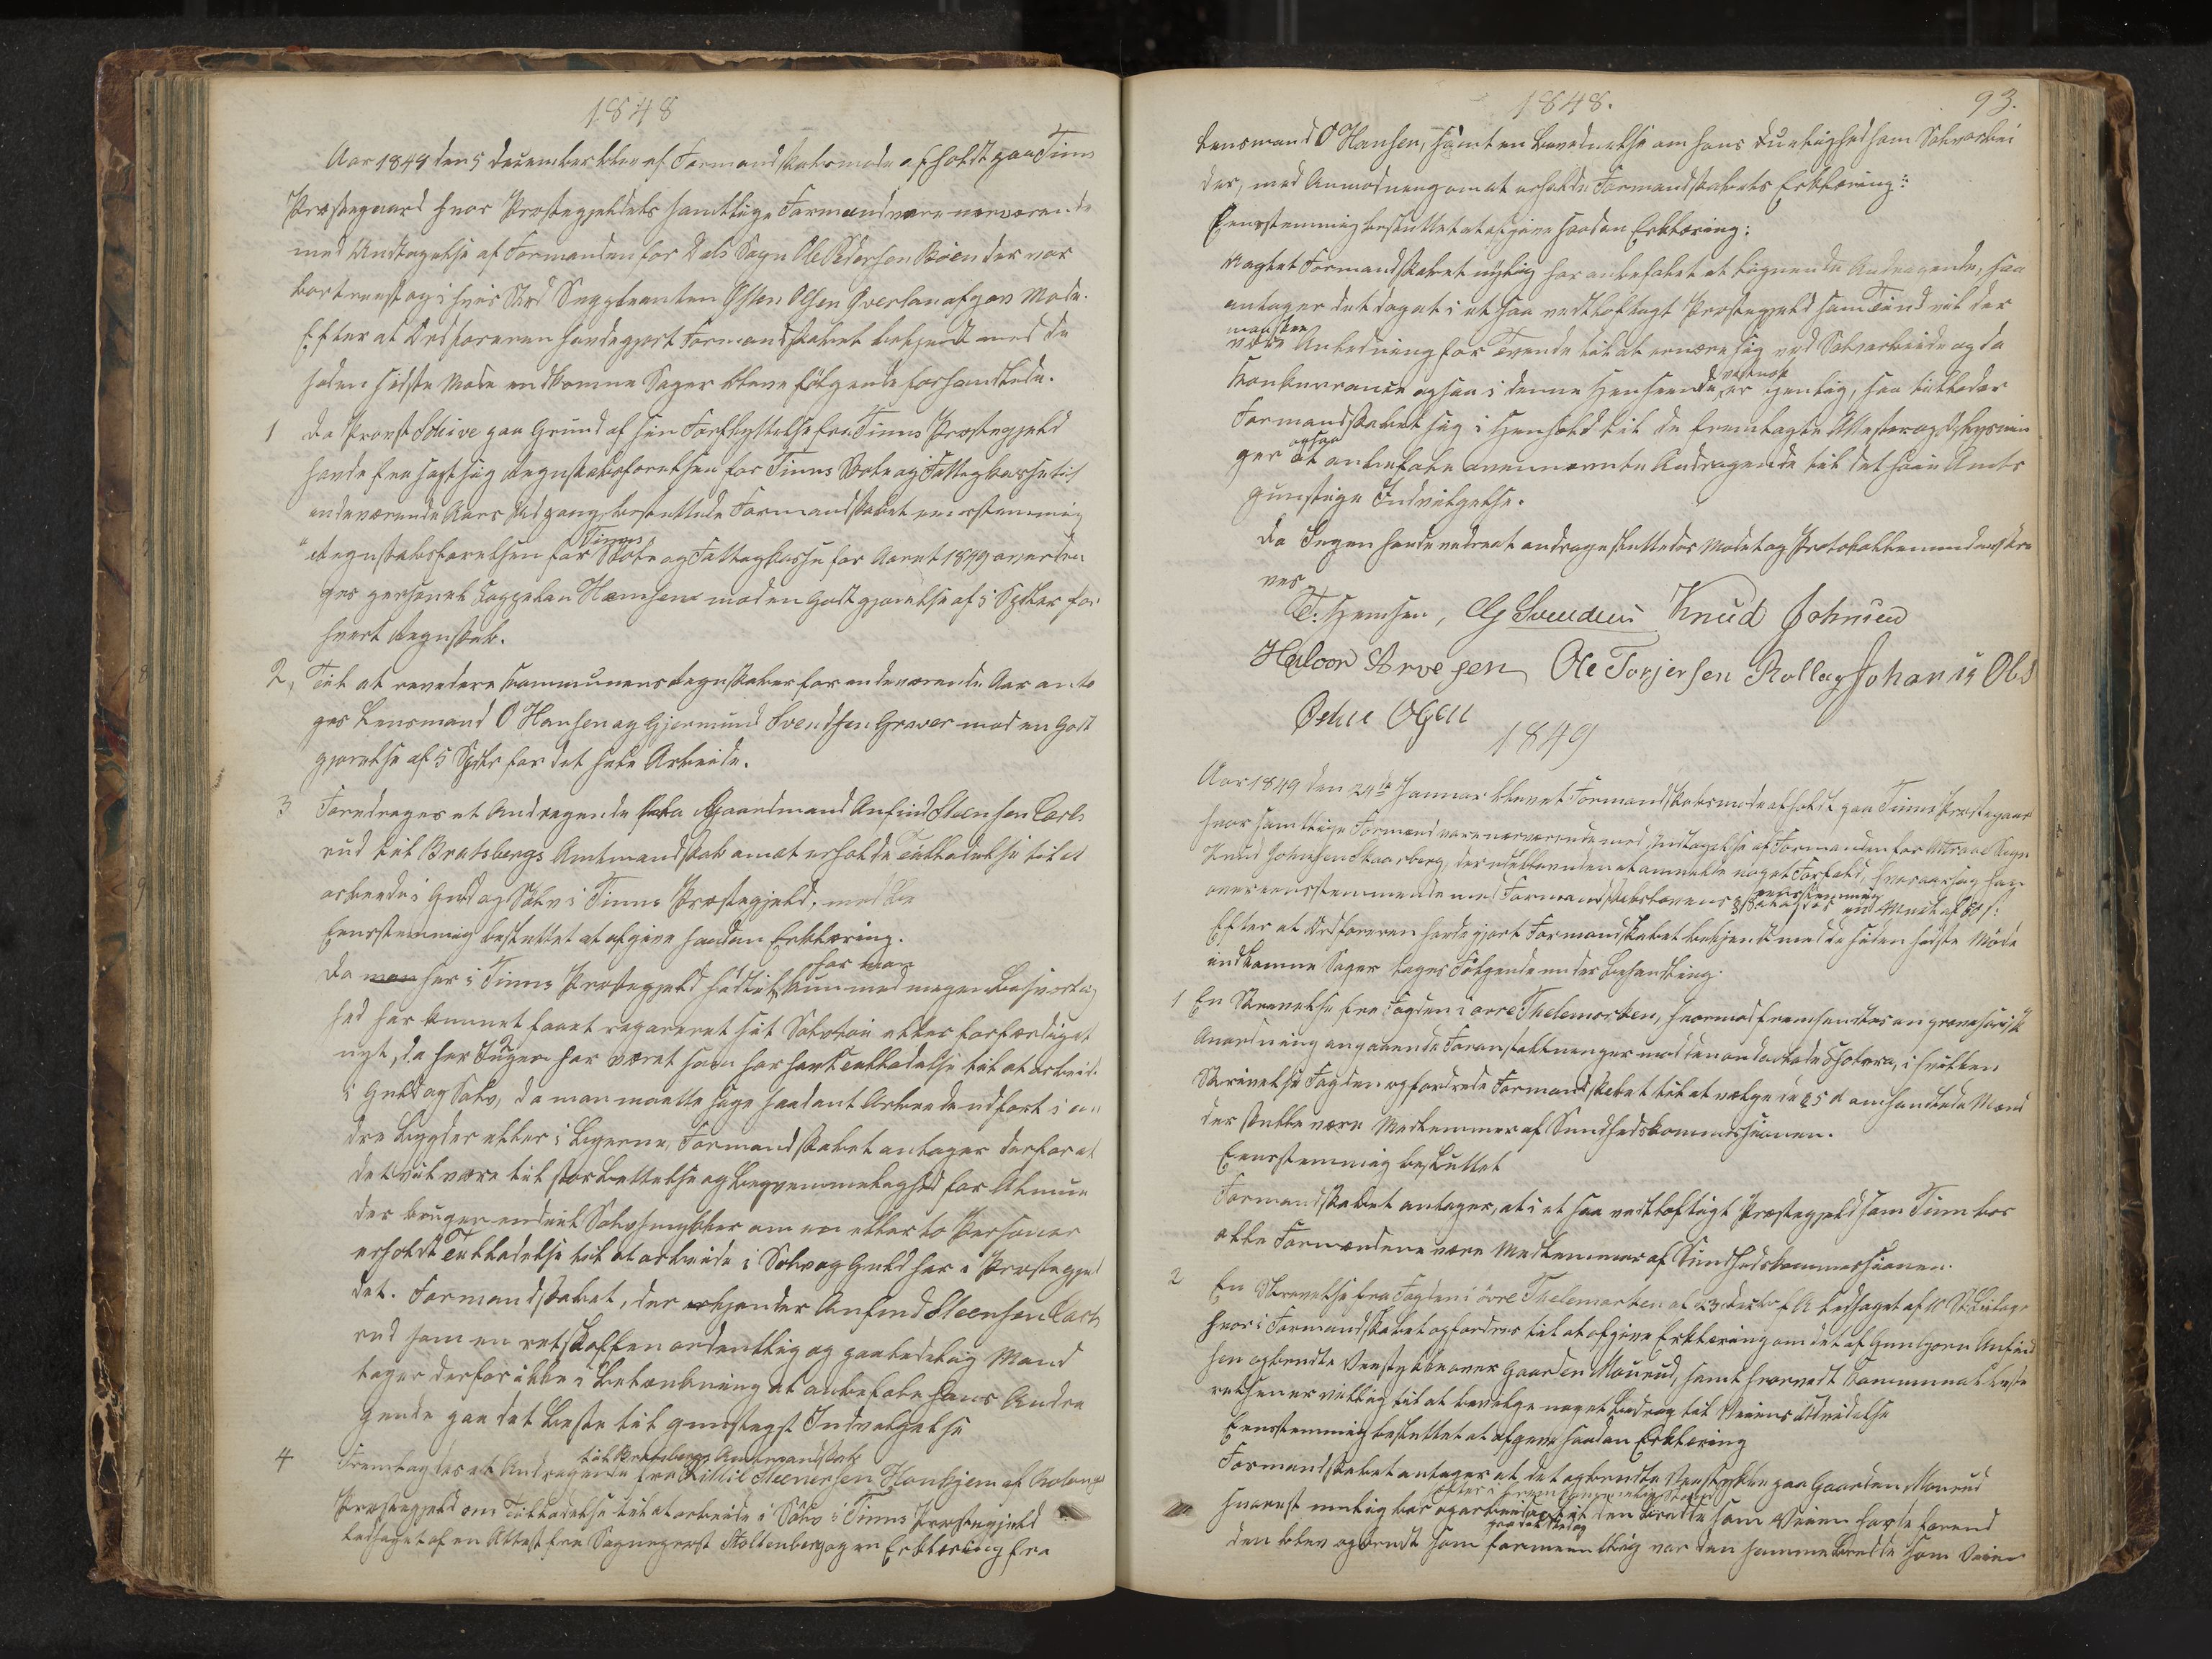 1848
Aar 1848 den 5 December blev et Formandskabsmøde afholdt paa Tinns
Præstegaard hvor Præstegjeldets samtlige Formænd vare nærværende
med Undtagelse af Formanden for Dals Sogn Ole Pedersen Bøen der var
bortreist og i hvis Sted Suppleanten Østen Olsen Qverlan afgav Møde.
Efter at Ordføreren havde gjort Formandskabet bekjendt med de
siden sidste Møde indkomne Sager bleve følgende forhandlede.
1 Da Provst Schive paa Grund af sin Forflyttelse fra Tinns Præstegjeld
havde fra sagt sig Regnskabsførelsen for Tinns Skole og Fattigkasse til
indeværende Aars Udgang besluttede Formandskabet eensstemmig
"Regnskabsførelsen for Tinns Skole og Fattigkasse for Aaret 1849 overdra
ges personel Cappelan Hemsen mod en Godtgjørelse af 5 Spdler for
hvert Regnskab.
2, Til at revidere Kommunens Regnskaber for indeværende Aar anto
ges Lensmand O Hansen og Gjermund Svendsen Graver mod en Godt
gjørelse af 5 Spdlr for det hele Arbeide.
3 Foredrages et Andragende fra Gaardmand Anfind Steensen Carls
rud til Bratsbergs Amtmandskab om at erholde Tilladelse til at
arbeide i Guld og Sølv i Tinns Præstegjeld.
Eensstemmig besluttet at afgive saadan Erklæring.
Da man her i Tinns Præstegjeld hidtil har man kun med megen Besværlig
hed har kunnet faaet repareret sit Sølvtøi eller forfærdiget
nyt, da her Ingen har været som har havt Tilladelse til at arbeide
i Guld og Sølv, da man maatte søge saadant Arbeide udført i an
dre Bygder eller i Byerne, Formandskabet antager derfor at
det vil være til stor Lettelse og Beqvemmelighed for Almue
der bruger endeel Sølvsmykker om en eller to Personer
erholdt Tilladelse til at arbeide i Sølv og Guld her i Præstegjel
det. Formandskabet, der kjender Anfind Steensen Carls
rud som en retskaffen ordentlig og paalidelig Mand
tager derfor ikke i Betænkning at anbefale hans Andra
gende paa det beste til gunstigst Indvilgelse
4 Fremlagdes et Andragende til Bratsbergs Amtmandskab fra Kittil Steenersen Haukjem af
Præstegjeld om Tilladelse til at arbeide i Sølv i Tinns Præstegjeld
ledsaget af en Attest fra Sognepræst Stoltenberg og en Erklæring fra
1848. 93.
Lensmand O Hansen, samt en Bevidnelse om hans Duelighed som Sølvarbei
der, med Anmodning om at erholde Formandskabets Erklæring:
Eensstemmig besluttet at afgive saadan Erklæring:
Uagtet Formandskabet nylig har anbefalet et lignende Andragende, saa
antager det dog at i et saa vidtløftigt Præstegjeld som Tind vil der
maaskee
være Anledning for Tvende til at ernære sig ved Sølvarbeide og da
Konkurrance ogsaa i denne Henseende vistnok er gavnlig, saa tillader
Formandskabet sig i Henhold til de fremlagte Attester og Oplysnin
ger ogsaa at anbefale ovennævnte Andragende til det høie Amts
gunstige Indvilgelse.
Da Ingen havde videre at andrage sluttedes Mødet og Protokollen underskre
ves
T: Hemsen, Svendsen Knud Johnsen
Halvor Arvesen Ole Torjersen Rollag Johannis Ols
Østen Olsen
1849
Aar 1849 den 24de Januar blev et Formandskabsmøde afholdt paa Tinns Præstegaard
hvor samtlige Formænd vare nærværende med Undtagelse af Formanden for Attraae Sogn
Knud Johnsen Skaarberg, der udeblev uden at anmelde noget Forfald, hvorfor han
overensstemmende med Formandskabslovens § eensstemmig ilagdes en Mulct af
Efter at Ordføreren havde gjort Formandskabet bekjendt med de siden sidste Møde
indkomne Sager toges Følgende under Behandling:
1 En Skrivelse fra Fogden i øvre Thelemarken, hvormed fremsendtes en provisorisk
Anordning angaaende Foranstaltninger mod den ondartede Cholera, i hvilken
Skrivelse Fogden opfordrede Formandskabet til at vælge de 5 a omhandlede Mænd
der skulle være Medlemmer af Sundhedskommissionen.
Eensstemmig besluttet
Formandskabet antager, at i et saa vidtløftigt Præstegjeld som Tinn bør
alle Formændene være Medlemmer af Sundhedskommissionen.
2 En Skrivelse fra Fogden i øvre Thelemarken af 23 Decbr f A ledsaget af 10 St: Bilage
hvori Formandskabet opfordres til at afgive Erklæring om det af Gunbjørn Anfind
sen opbrudte Veistykke over Gaarden Mourud, samt hvorvidt Communebesty
relsen er villig til at bevilge noget Bidrag til Veiens Udvidelse
Eensstemmig besluttet at afgive saadan Erklæring
Formandskabet antager at det opbrudte Veistykke paa Gaarden Mourud
snarest muelig bør oparbeides til den Bredde som Veien havde førend
den blev opbrudt som formeentlig var den samme Bredde som Veien